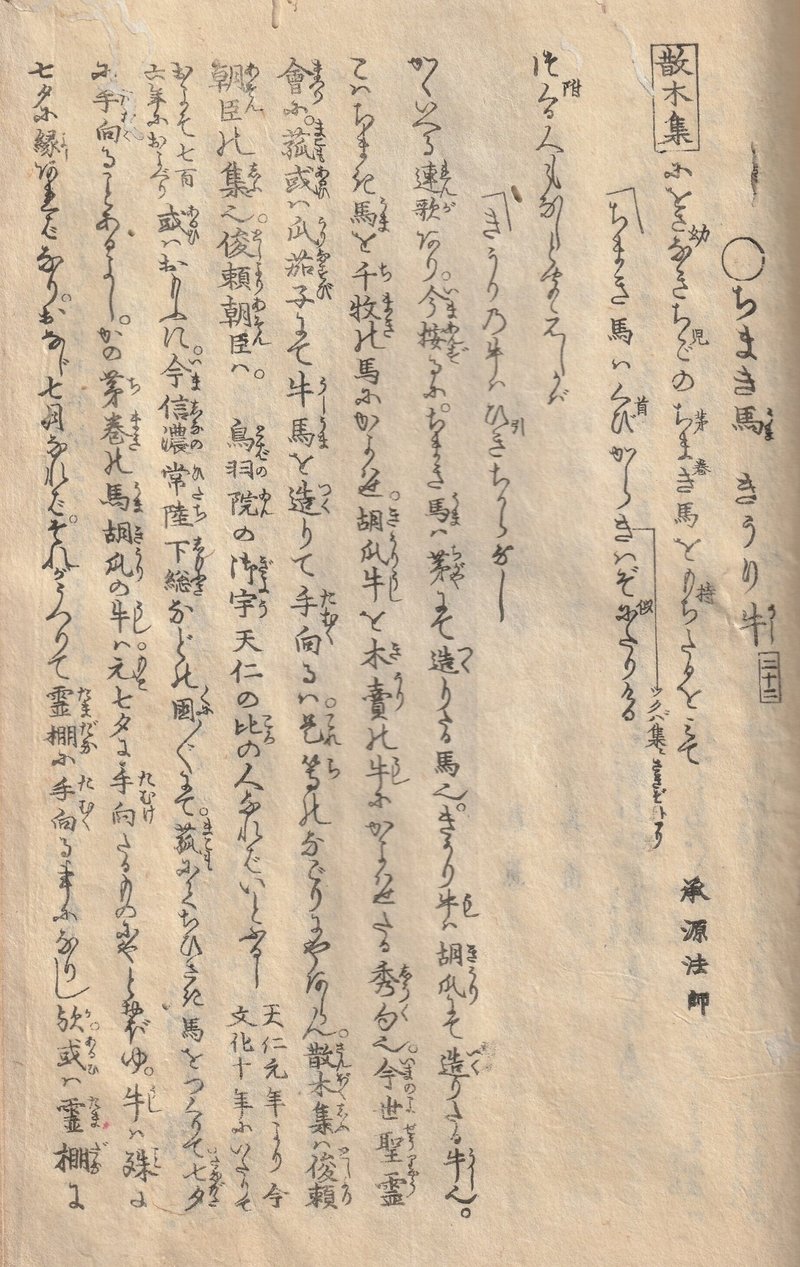 ○ちまき馬 きうり牛 二十三
散木集 にをさなきちごのちまき馬をもちたるをみて 承源法師
ちまき馬はくびからきはぞ似たりける
ツクバ集ニ
附る人もなしときこえしかば
きうりの牛はひきちからなし
かくいへる連歌あり。今按るに。ちまき馬は茅にて造りたる馬也。きうり牛は胡瓜にて造りたる牛也。
こはちまき馬を千牧の馬にかよはせ。胡瓜牛を木賣の牛にかよはせたる秀句也。今世聖霊
會に。菰或は瓜茄子にて牛馬を造りて手向るは。是等のなごりにやあらん。散木集は俊頼
朝臣の集也。俊頼朝臣は。鳥羽院の御宇天仁の比の人なればいとふるし 天仁元年より今
文化十年にいたりて
およそ七百
六年におよべり 或はおもふに。今信濃常陸下総などの國〴〵にて。菰にてちひさき馬をつくりて七夕
に手向ることあるよし。かの茅巻の馬胡瓜の牛は。元七夕に手向たるものにやと勢ゆ。牛は殊に
七夕に縁あればなり。おなじ七月なれば。それがうつりて霊棚に手向る事になりし歟。或は霊棚に